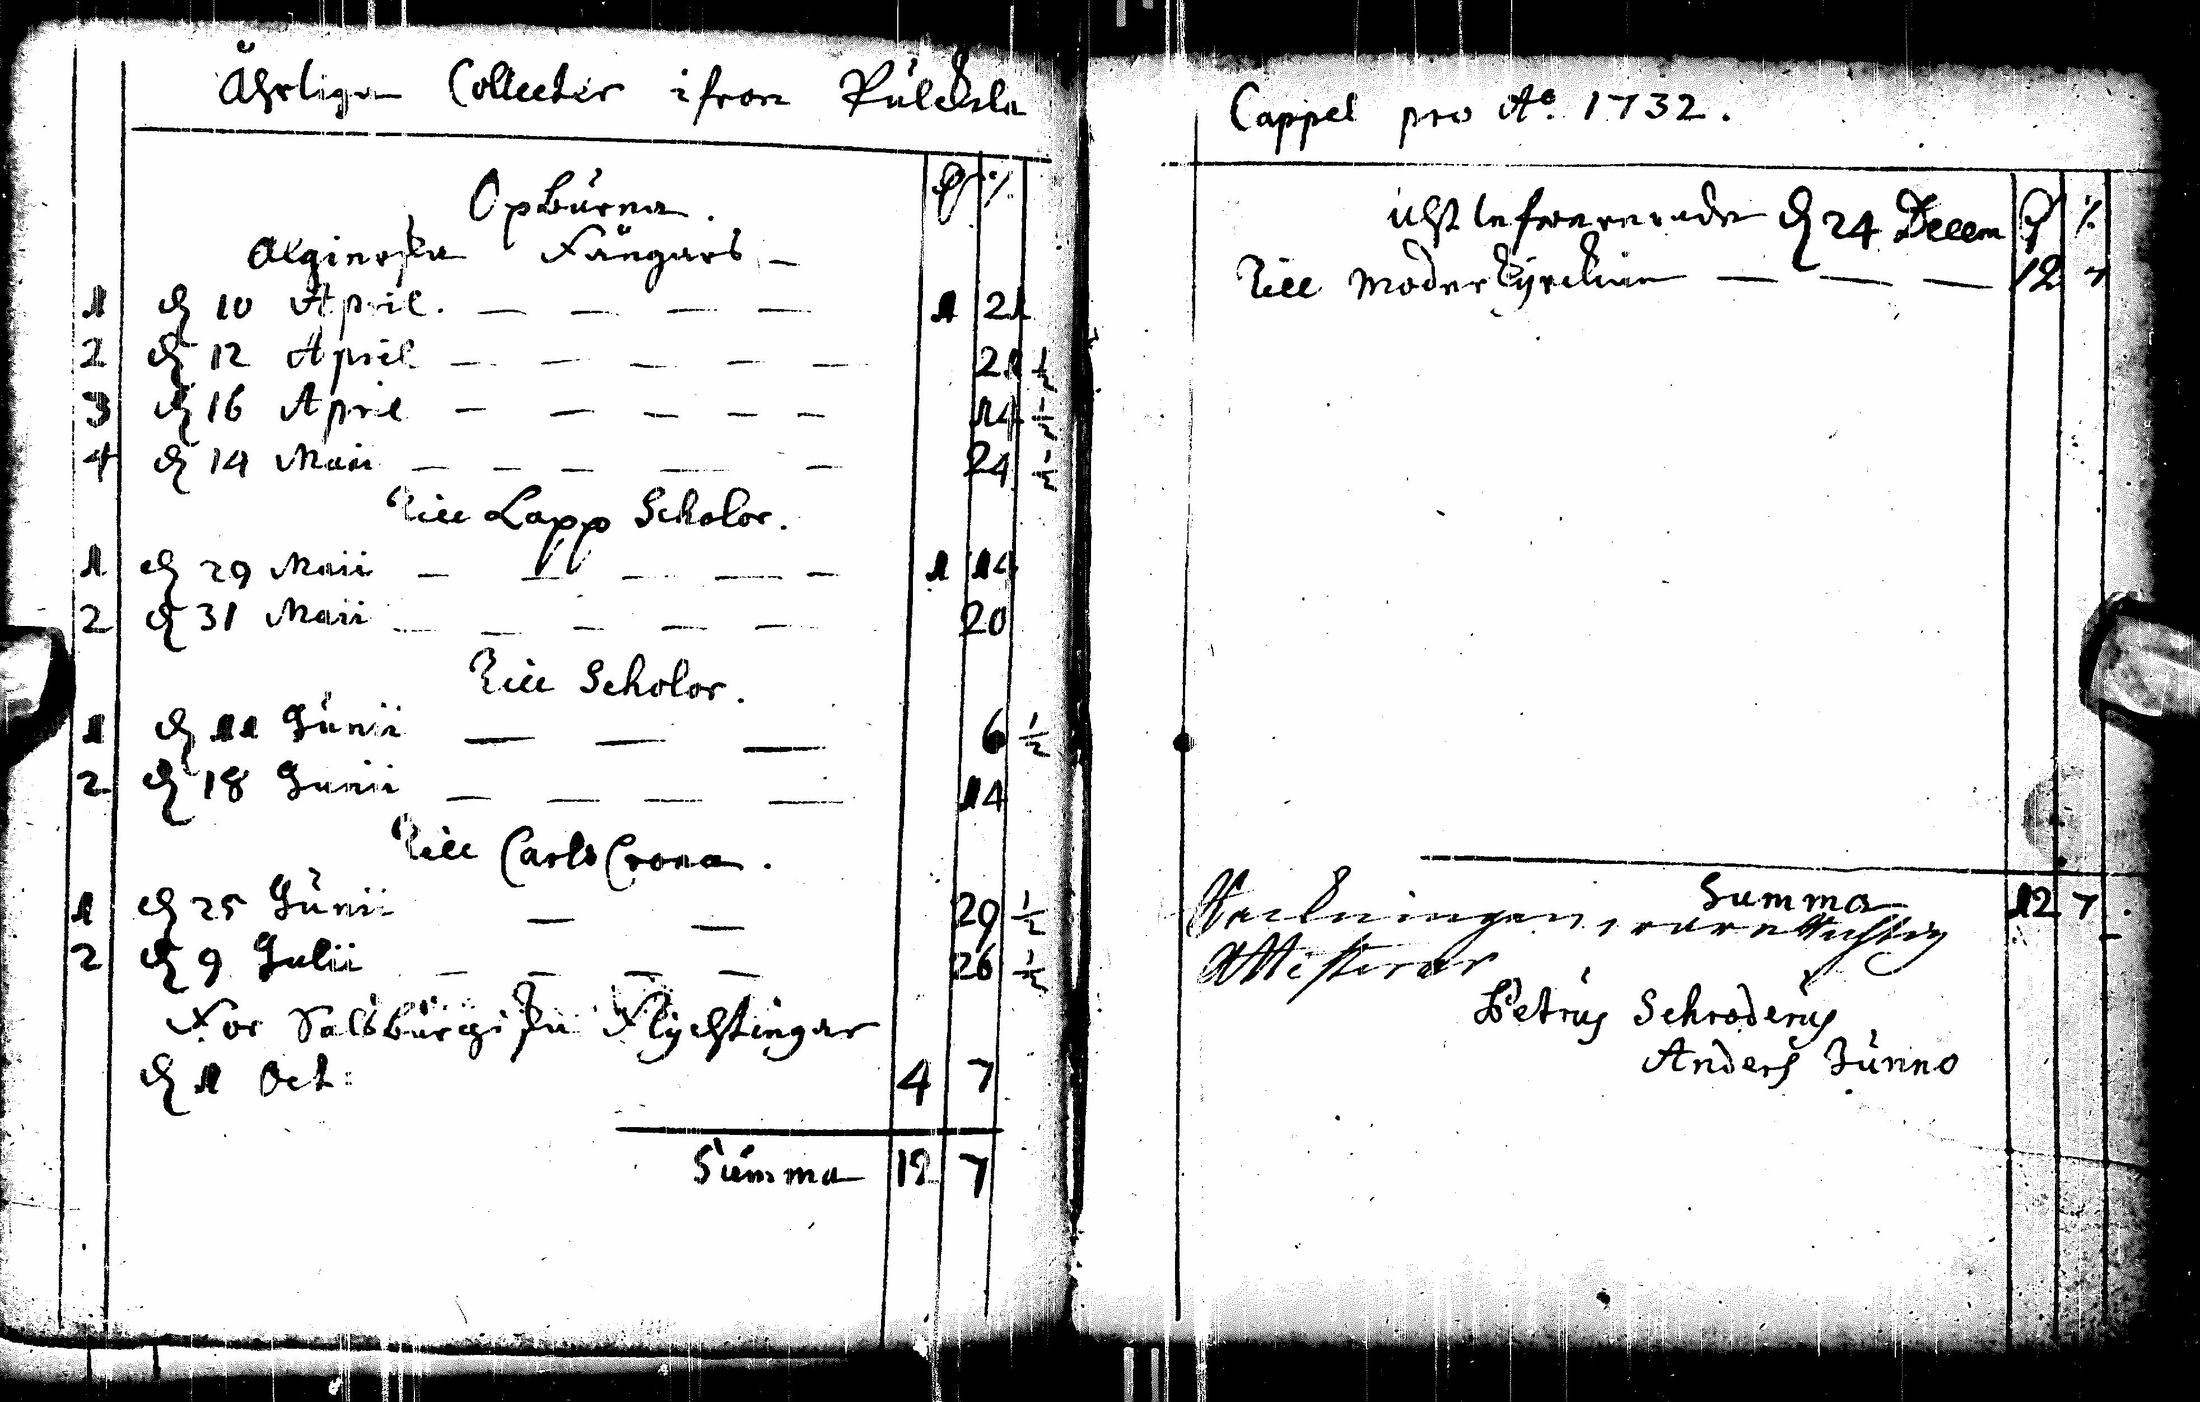 Åhrlige Collecter ifron Pulckila
Opburna.
Algierska Fångars —
1 d 10 April. — — — — 1 21
2 d 12 April — — — — — 21 ½
3 d 16 April — — — — — 14 ½
4 d 14 Maii — — — — — 24 ½
Till Lapp Scholor.
1 d 29 Maii — — — — — 1 14
2 d 31 Maii — — — — — 20
Till Scholor.
1 d 11 Junii — — — 6 ½
2 d 18 Junii — — — — 14
Till CarlsCrona.
1 d 25 Junii — — 29 ½
2 d 9 Julii — — — — 26 ½
For Saltsburgiska Flychtingar
d 1 Oct: 4 7
Summa 12 7
Cappel pro Ao. 1732.
uthlefwererade d 24 Decem
Till Moderkyrckian — — — 12 7
Summa 12 7.
Räkningen wara Richtig
Attesterar
Petrus Schroderus
Anders Junno